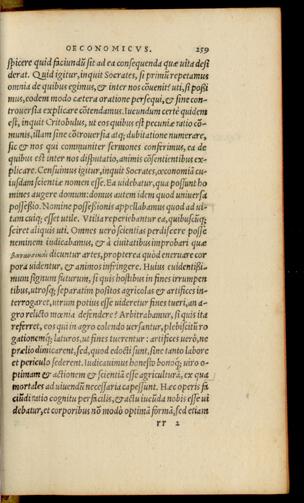 OECONOMICVS. 259
spicere quid faciundū sit ad ea consequenda quæ uita desi
derat. Quid igitur, inquit Socrates, si primū repetamus
omnia de quibus egimus, & inter nos cōuenit? uti, si possi
mus, eodem modo cætera oratione persequi, & sine con-
trouersia explicare cōtendamus. Iucundum certè quidem
est, inquit Critobulus, ut eos quibus est pecuniæ ratio cō-
munis, illam sine cōtrouersia atq; dubitatione numerare,
sic & nos qui communiter sermones conferimus, ea de
quibus est inter nos disputatio, animis cōsentientibus ex-
plicare. Censuimus igitur, inquit Socrates, œconomiā cu-
iusdam scientiæ nomen esse. Ea uidebatur, qua possunt ho
mines augere domum: domus autem idem quod uniuersa
possessio. Nomine possessionis appellabamus quod ad ui-
tam cuiq; esset utile. Vtilia reperiebantur ea, quibus quisq;
sciret aliquis uti. Omnes uerò scientias perdiscere posse
neminem iudicabamus, & à ciuitatibus improbari quæ
dicuntur artes, propterea quòd eneruare cor
pora uidentur, & animos infringere. Huius euidentissi-
mum signum futurum, si quis hostibus in fines irrumpen
tibus, utrosq; separatim positos agricolas & artifices in-
terrogaret, utrum potius esse uideretur fines tueri, an a-
gro relicto mœnia defendere? Arbitrabamur, si quis ita
referret, eos qui in agro colendo uersantur, plebiscitū ro
gationemq; laturos, ut fines tuerentur: artifices uerò, ne
prælio dimicarent, sed, quod edocti sunt, sine tanto labore
et periculo sederent. Iudicauimus honesto bonoq; uiro o-
ptimam & actionem & scientiā esse agriculturā, ex qua
mortales ad uiuendū necessaria capessunt. Hæc operis fa
ciūdi ratio cognitu perfacilis, & actu iucūda nobis esse ui
debatur, et corporibus nō modò optimā formā, sed etiam
rr 2